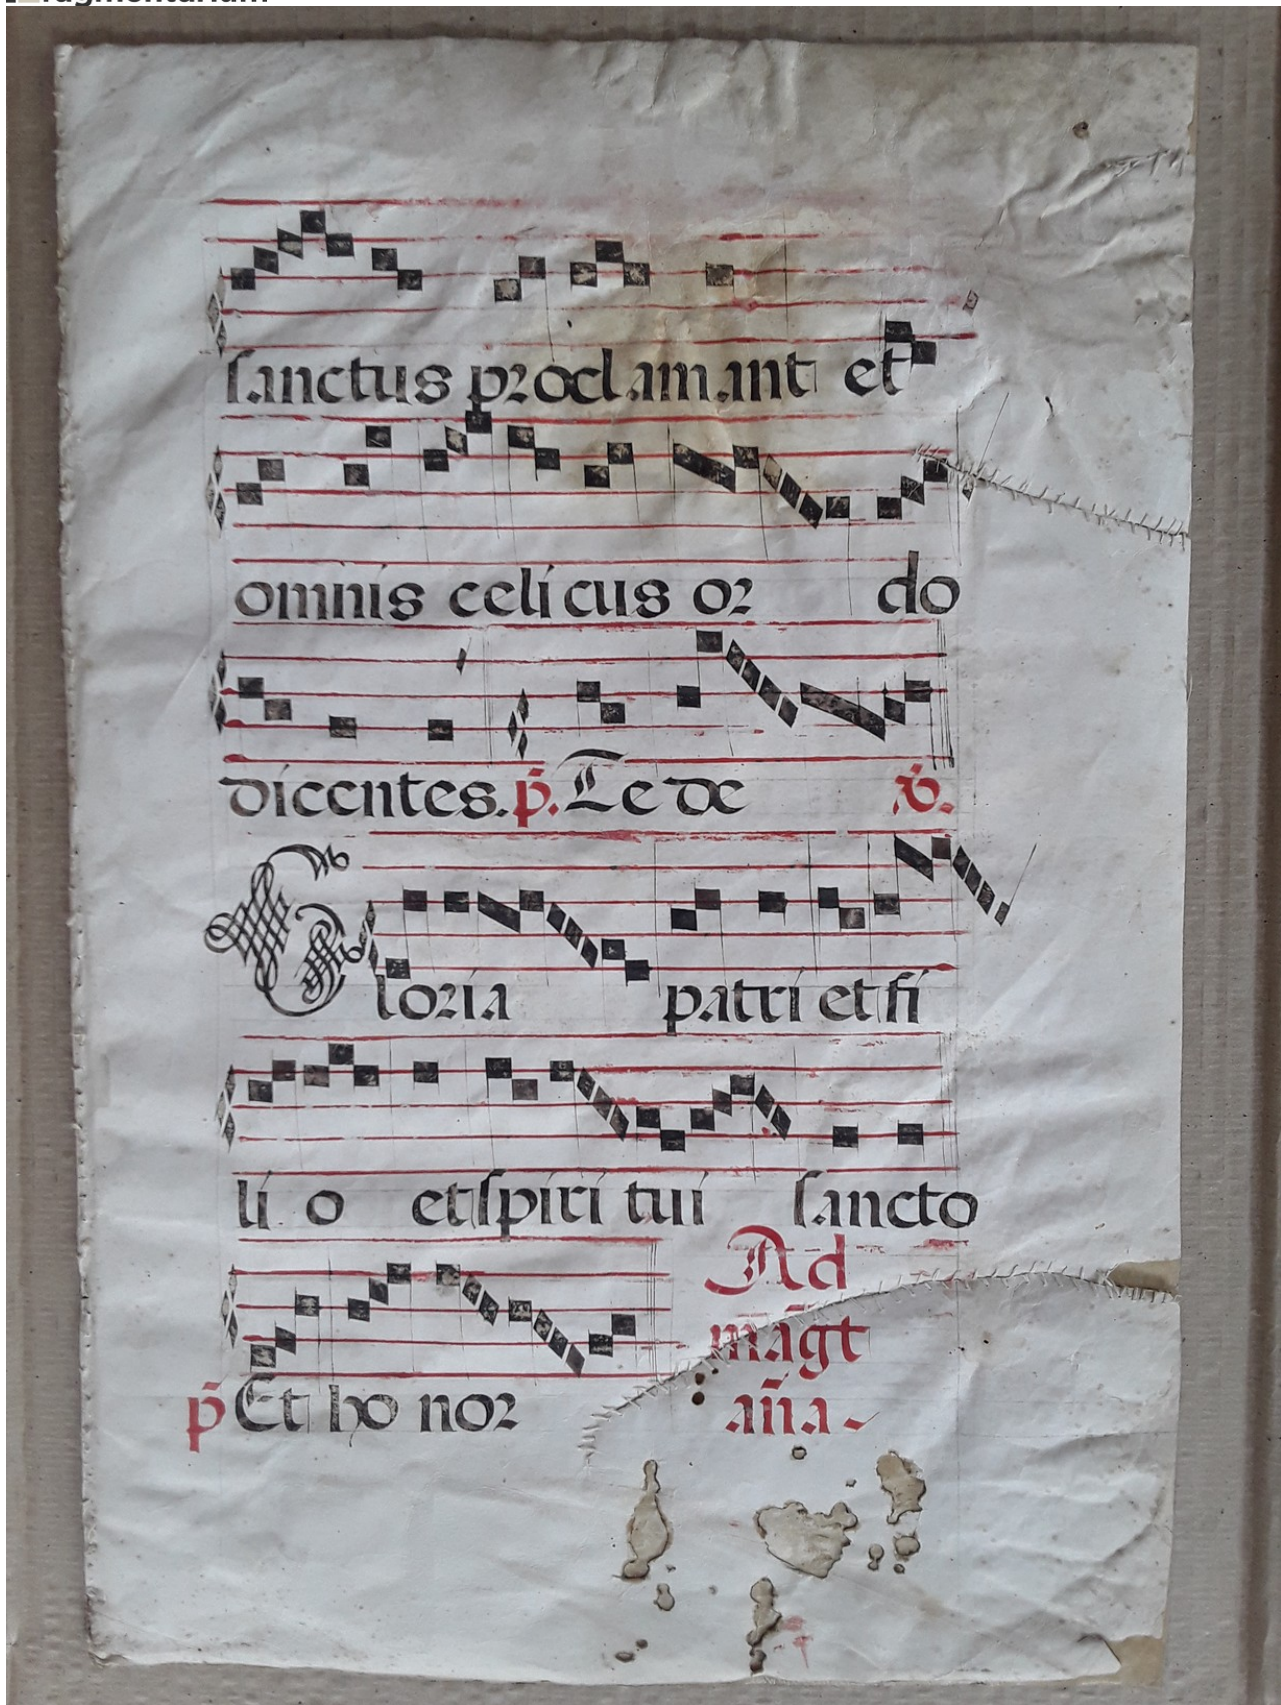 sanctus proclamant et
omnis celicus or do
dicentes. p̄. Te de V̄.
Gloria patri et fi
li o et spiri tui sancto
p̄ Et ho nor
Ad
māgt
an̄a